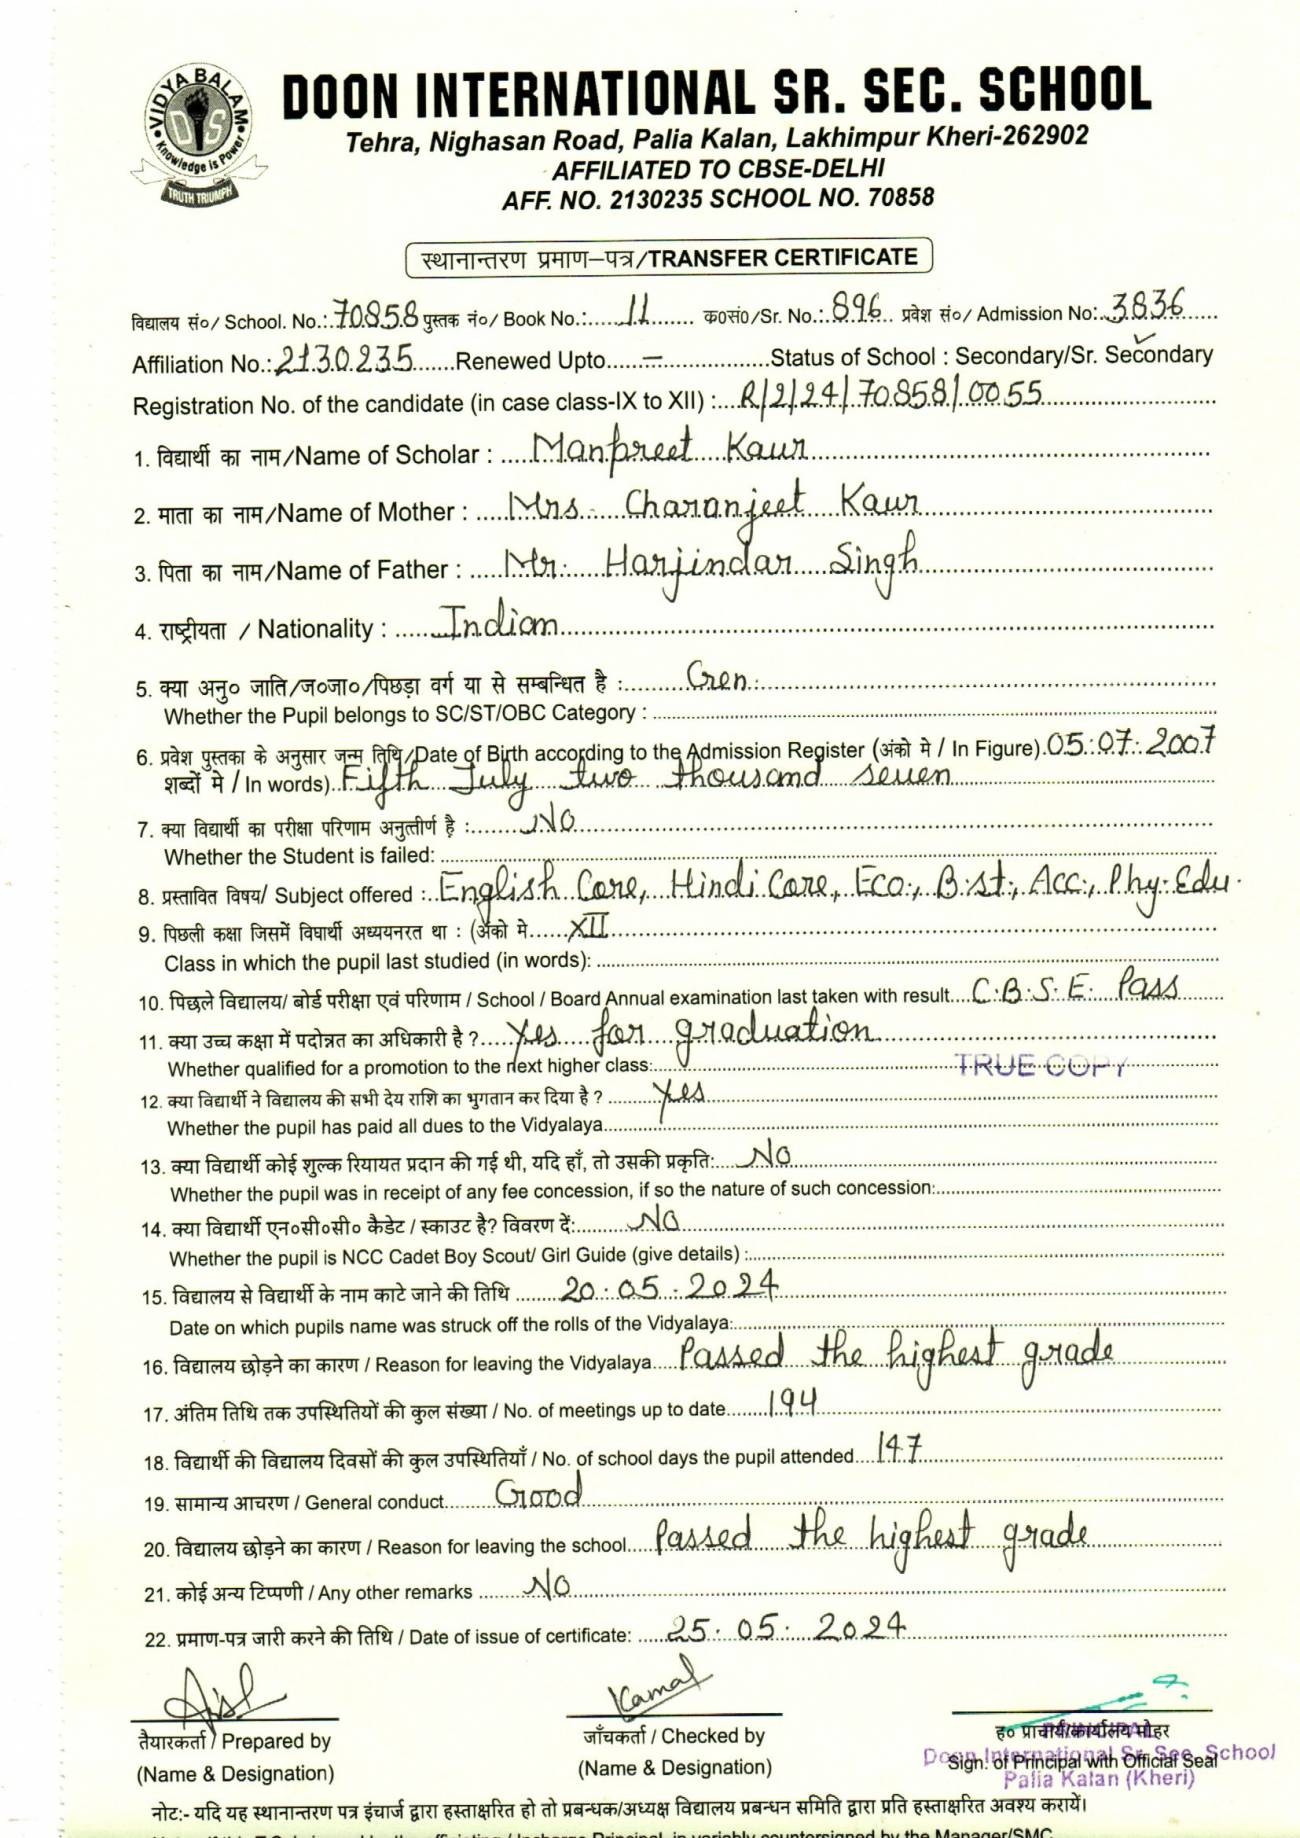 VIDYA BALAM
DIS
Knowledge is Power
TRUTH TRIUMPH
DOON INTERNATIONAL SR. SEC. SCHOOL
Tehra, Nighasan Road, Palia Kalan, Lakhimpur Kheri-262902
AFFILIATED TO CBSE-DELHI
AFF. NO. 2130235 SCHOOL NO. 70858
स्थानान्तरण प्रमाण–पत्र/TRANSFER CERTIFICATE
विद्यालय सं०/ School. No.: 70858 पुस्तक नं०/ Book No.: 11 क०सं०/Sr. No.: 896 प्रवेश सं०/ Admission No: 3836
Affiliation No.: 2130235 Renewed Upto — Status of School : Secondary/Sr. Secondary ✓
Registration No. of the candidate (in case class-IX to XII) : R/2/24/70858/0055
1. विद्यार्थी का नाम/Name of Scholar : Manpreet Kaur
2. माता का नाम/Name of Mother : Mrs. Charanjeet Kaur
3. पिता का नाम/Name of Father : Mr. Harjindar Singh
4. राष्ट्रीयता / Nationality : Indian
5. क्या अनु० जाति/ज०जा०/पिछड़ा वर्ग या से सम्बन्धित है : Gen.
Whether the Pupil belongs to SC/ST/OBC Category :
6. प्रवेश पुस्तका के अनुसार जन्म तिथि/Date of Birth according to the Admission Register (अंको मे / In Figure) 05.07.2007
शब्दों मे / In words) Fifth July two thousand seven
7. क्या विद्यार्थी का परीक्षा परिणाम अनुत्तीर्ण है : NO
Whether the Student is failed:
8. प्रस्तावित विषय/ Subject offered : English Core, Hindi Core, Eco., B.st., Acc., Phy. Edu.
9. पिछली कक्षा जिसमें विघार्थी अध्ययनरत था : (अंको मे XII
Class in which the pupil last studied (in words):
10. पिछले विद्यालय/ बोर्ड परीक्षा एवं परिणाम / School / Board Annual examination last taken with result C.B.S.E. Pass
11. क्या उच्च कक्षा में पदोन्नत का अधिकारी है ? Yes for graduation
Whether qualified for a promotion to the next higher class:
TRUE COPY
12. क्या विद्यार्थी ने विद्यालय की सभी देय राशि का भुगतान कर दिया है ? Yes
Whether the pupil has paid all dues to the Vidyalaya
13. क्या विद्यार्थी कोई शुल्क रियायत प्रदान की गई थी, यदि हाँ, तो उसकी प्रकृति: NO
Whether the pupil was in receipt of any fee concession, if so the nature of such concession:
14. क्या विद्यार्थी एन०सी०सी० कैडेट / स्काउट है? विवरण दें: NO
Whether the pupil is NCC Cadet Boy Scout/ Girl Guide (give details) :
15. विद्यालय से विद्यार्थी के नाम काटे जाने की तिथि 20.05.2024
Date on which pupils name was struck off the rolls of the Vidyalaya:
16. विद्यालय छोड़ने का कारण / Reason for leaving the Vidyalaya Passed the highest grade
17. अंतिम तिथि तक उपस्थितियों की कुल संख्या / No. of meetings up to date 194
18. विद्यार्थी की विद्यालय दिवसों की कुल उपस्थितियाँ / No. of school days the pupil attended 147
19. सामान्य आचरण / General conduct Good
20. विद्यालय छोड़ने का कारण / Reason for leaving the school Passed the highest grade
21. कोई अन्य टिप्पणी / Any other remarks NO
22. प्रमाण-पत्र जारी करने की तिथि / Date of issue of certificate: 25.05.2024
Kamal
तैयारकर्ता / Prepared by जाँचकर्ता / Checked by ह० प्राचार्य/कार्यालय मोहर
PRINCIPAL
(Name & Designation) (Name & Designation) Sign. of Principal with Official Seal
Doon International Sr. Sec. School
Palia Kalan (Kheri)
नोट:- यदि यह स्थानान्तरण पत्र इंचार्ज द्वारा हस्ताक्षरित हो तो प्रबन्धक/अध्यक्ष विद्यालय प्रबन्धन समिति द्वारा प्रति हस्ताक्षरित अवश्य करायें।